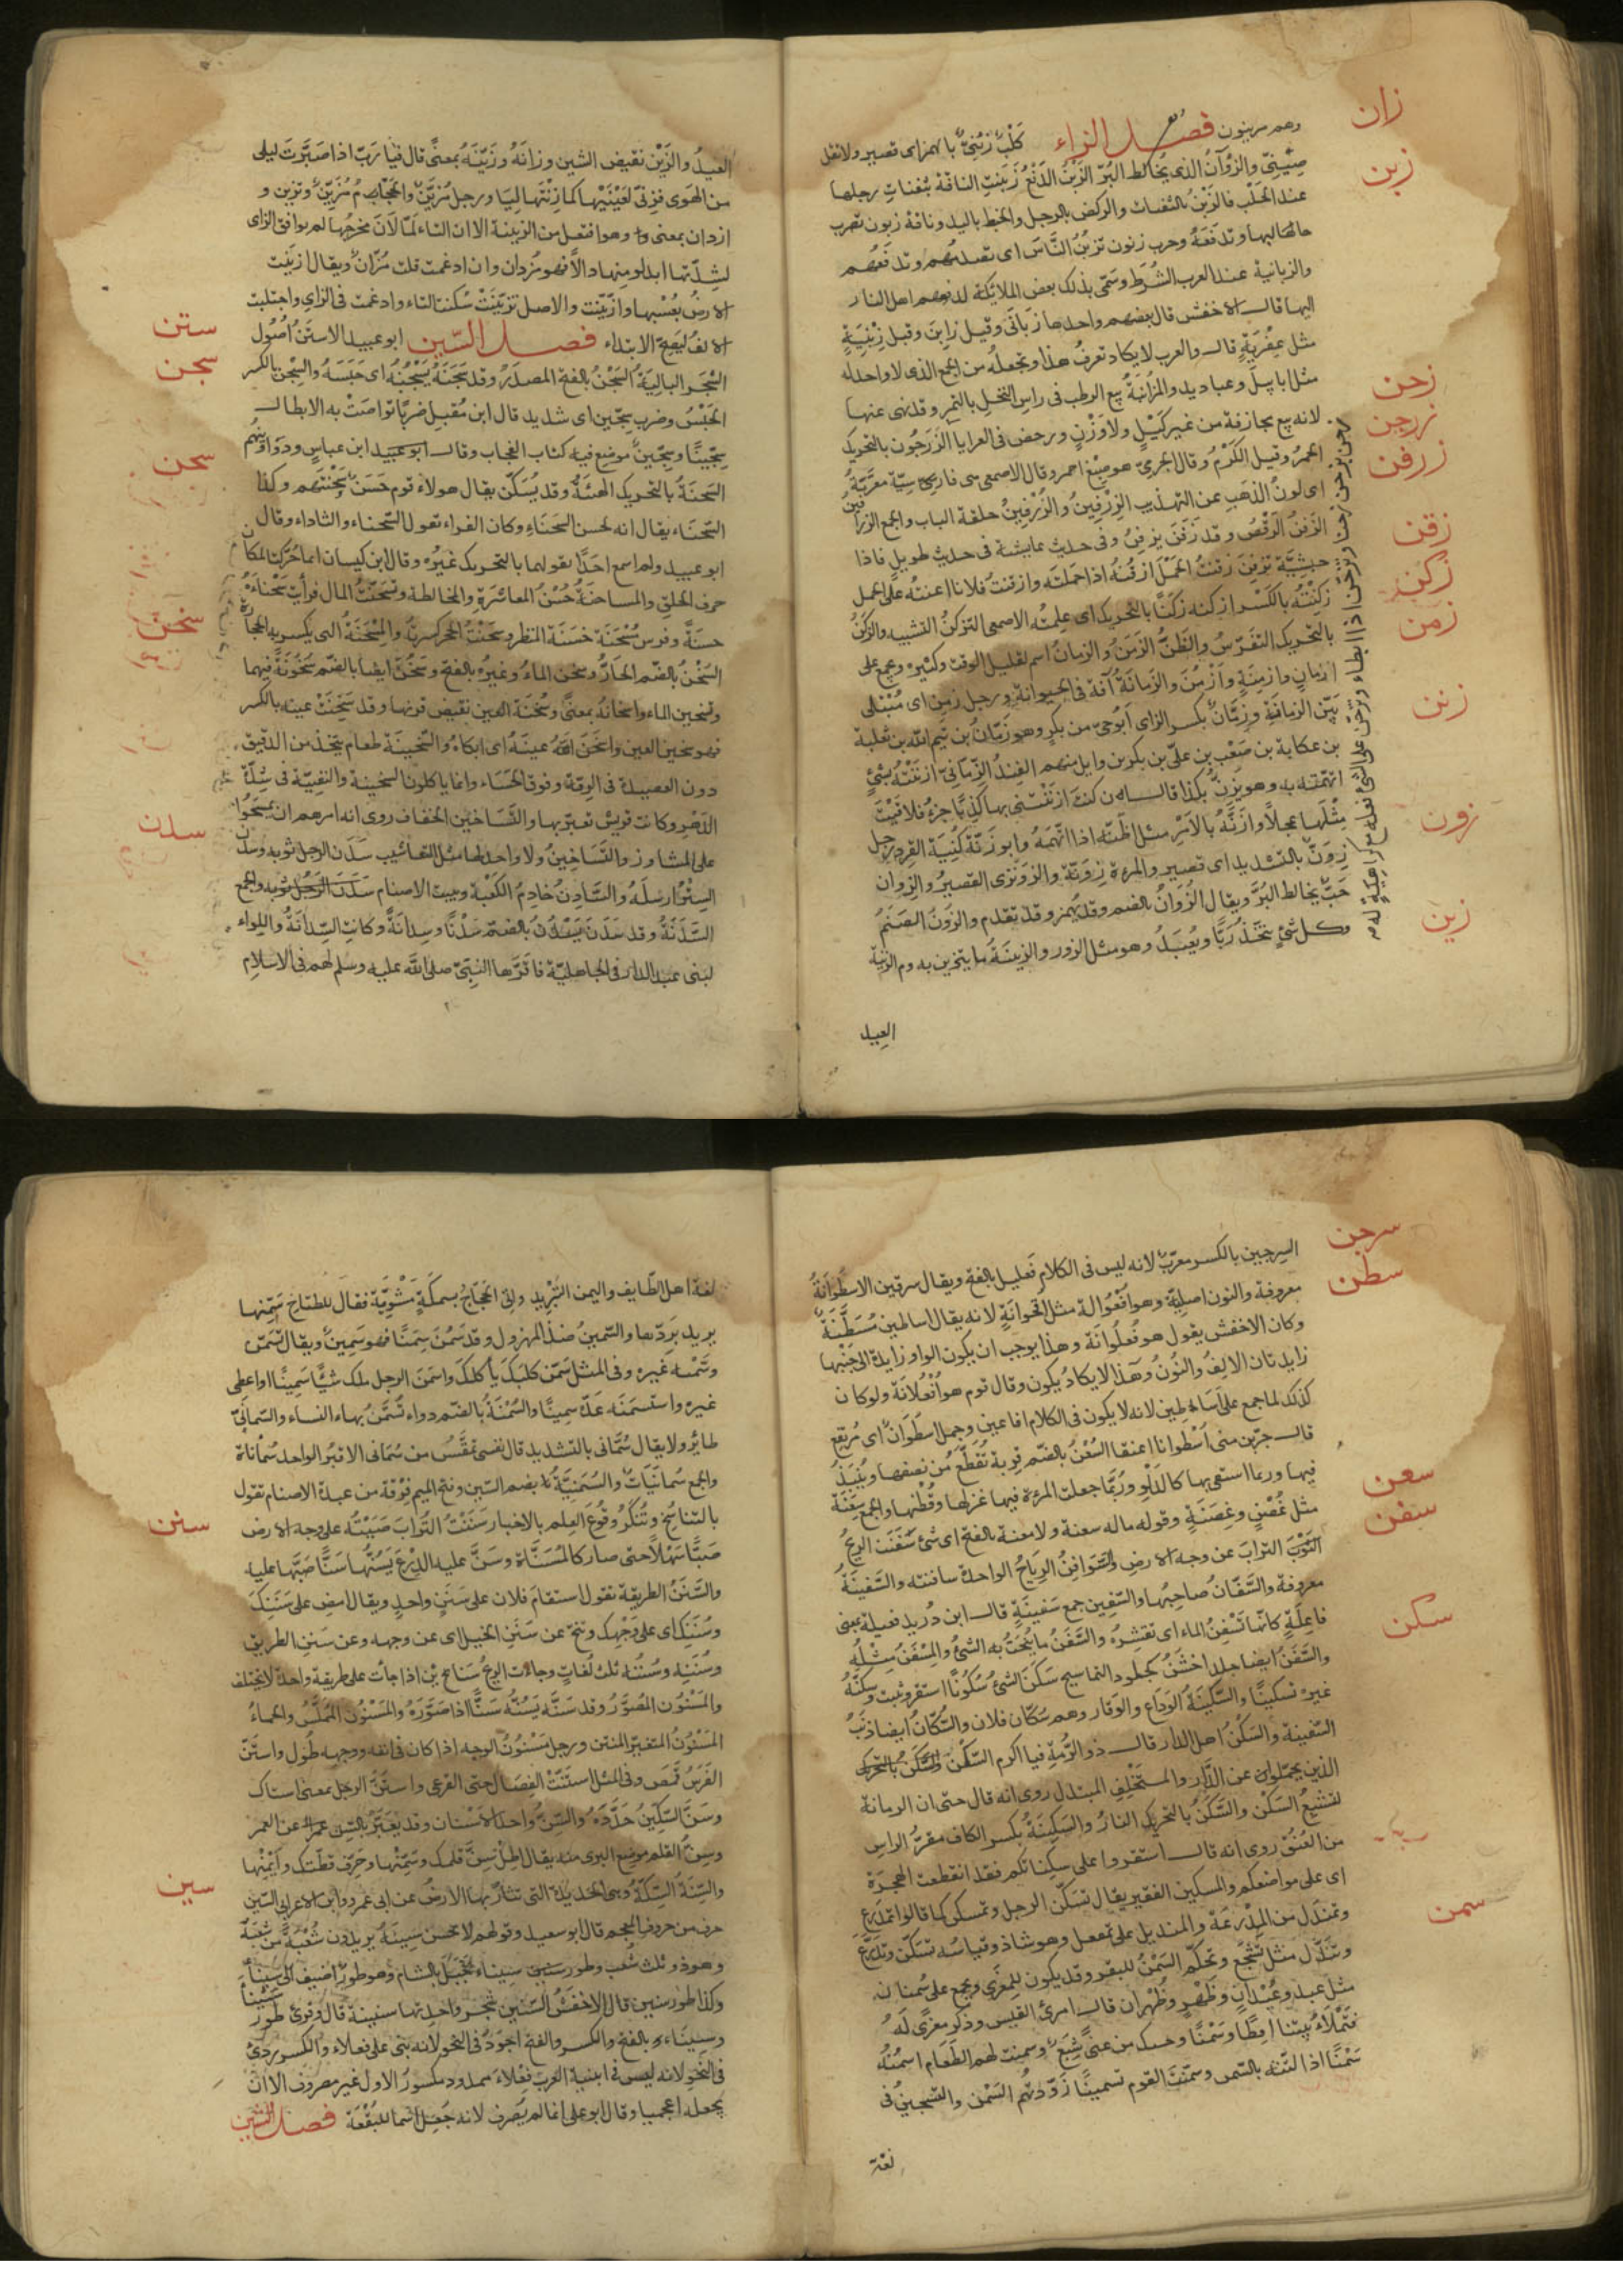 زان
وهم مرينون فصل الزاء كلب زئني بالهمز اى قصير ولا تقل
زبن
صيني والزؤان الذى يخالط البر الزبن الدفع زبنت الناقة بثفنات رجلها
عند الحلب فالزبن بالثفنات والركض بالرجل والخبط باليد وناقة زبون تضرب
حالبها وتدفعه وحرب زبون تزبن الناس اى تصدمهم وتدفعهم
والزبانية عند العرب الشرط وسمى بذلك بعض الملائكة لدفعهم اهل النار
اليها قال الاخفش قال بعضهم واحدها زبانى وقيل زابن وقيل زبنية
مثل عفرية قال والعرب لا يكاد تعرف هذا وتجعله من الجمع الذى لا واحد له
زجن
مثل ابابيل وعباديد والمزابنة بيع الرطب فى راس النخل بالتمر وقد نهى عنها
زرجن
لانه بيع مجازفة من غير كيل ولا وزن ورخص فى العرايا الزرجون بالتحريك
زرفن
الخمر وقيل الكرم وقال الجرمى هو صبغ احمر وقال الاصمعى هى فارسية معربة
اى لون الذهب عن التهذيب الزرفين والزرفين حلقة الباب والجمع الزرافين
زفن
الزفن الرقص وقد زفن يزفن وفى حديث عايشة فى حديث طويل فاذا
زكن
حبشية تزفن زفنت الحمل ازفنه اذا حملته وازفنت فلانا اعنته على الحمل
زكنته بالكسر ازكنه زكنا بالتحريك اى علمته الاصمعى التزكن التشبيه والزكن
زمن
بالتحريك التفرس والظن الزمن والزمان اسم لقليل الوقت وكثيره ويجمع على
ازمان وازمنة وازمن والزمانة آفة فى الحيوانة ورجل زمن اى مبتلى
زنن
بين الزمانة وزمان بكسر الزاى ابو حى من بكر وهو زمان بن تيم الله بن ثعلبة
بن عكابة بن صعب بن على بن بكر بن وايل منهم الفند الزمانى ازننته بشئ
اتهمته به وهو يزن بكذا قال ان كنت ازننتنى بها كذبا جزء فلاقيت
زون
مثلها عجلا وازنه بالامر مثل اظنه اذا اتهمه وابو زنة كنية القرد رجل
زون بالتشديد اى قصير والمرءة زونة والزونزى القصير والزوان
حب يخالط البر ويقال الزوان بالضم وقد يهمز وقد تقدم والزون الصنم
زين
وكل شئ يتخذ ربا ويعبد وهو مثل الزور والزينة ما يتزين به ويوم الزينة
العيد
العيد والزين نقيض الشين وزانه وزينه بمعنى قال فيا رب اذ صيرت ليلى
من الهوى فزنى لعينيها كما زنتها ليا ورجل مزين والحجام مزين وتزين و
ازدان بمعنى وهو افتعل من الزينة الا ان التاء لما لان مخرجها لم يوافق الزاى
لشدتها ابدلو منها دالا فهو مزدان وان ادغمت قلت مزان ويقال ازينت
الارض بعشبها وازينت والاصل تزينت سكنت التاء وادغمت فى الزاى واجتلبت
ستن
الالف ليصح الابتداء فصل السين ابو عبيد الاستن اصول
سجن
الشجر البالية السجن بالفتح المصدر وقد سجنه يسجنه اى حبسه والسجن بالكسر
الحبس وضرب سجين اى شديد قال ابن مقبل ضربا تواصت به الابطال
سجينا وسجين موضع فيه كتاب الفجار وقال ابو عبيد ابن عباس ودواوينهم
سحن
السحنة بالتحريك الهيئة وقد يسكن يقال هولاء قوم حسن سحنتهم وكذا
السحناء يقال انه لحسن السحناء وكان الفراء تقول السحناء والثاداء وقال
ابو عبيد ولم اسمع احدا يقولهما بالتحريك غيره وقال ابن كيسان انما حركتا لمكان
حرف الحلق والمساحنة حسن المعاشرة والمخالطة وتسحنت المال فرأيت سحناءه
سخن
حسنة وفرس مسحنة حسنة المنظر وسحنت الحجر كسرته والمسحنة التى يكسر به الحجارة
السخن بالضم الحار وسخن الماء وغيره بالفتح وسخن ايضا بالضم سخونة فيهما
وتسخين الماء واسخانه بمعنى وسخنة العين نقيض قرتها وقد سخنت عينه بالكسر
فهو سخين العين واسخن الله عينه اى ابكاه والسخينة طعام يتخذ من الدقيق
دون العصيدة فى الرقة وفوق الحساء وانما ياكلون السخينة والنفيتة فى شدة
الدهر وكانت قريش تعير بها والتساخين الخفاف روى انه امرهم ان يمسحوا
سدن
على المشاوذ والتساخين ولا واحد لها مثل التعاشيب سدن الرجل ثوبه وسدن
الستر ارسله والسادن خادم الكعبة وبيت الاصنام والجمع
السدنة وقد سدن يسدن بالضم سدنا وسدانة وكانت السدانة واللواء
لبنى عبد الدار فى الجاهلية فاقرها النبى صلى الله عليه وسلم لهم فى الاسلام
سرجن
السرجين بالكسر معرب لانه ليس فى الكلام فعليل بالفتح ويقال سرقين الاسطوانة
سطن
معروفة والنون اصلية وهو افعوالة مثل اقحوانة لانه يقال اساطين مسطنة
وكان الاخفش يقول هو فعلوانة وهذا يوجب ان يكون الواو زايدة الى جنبها
زايدتان الالف والنون وهذا لا يكاد يكون وقال قوم هو افعلانة ولو كان
كذلك لما جمع على اساطين لانه لا يكون فى الكلام افاعين وجمل اسطوان اى مرتفع
قال جربن منى اسطوانا اعنقا السعن بالضم قربة تقطع من نصفها وينبذ
سعن
فيها وربما استقى بها كالدلو وربما جعلت المرءة فيها غزلها وقطنها والجمع سعنة
سفن
مثل غصن وغصنة وقوله ماله سعنة ولا معنة بالفتح اى شئ سفنت الريح
التراب عن وجه الارض والسوافن الرياح الواحدة سافنته والسفينة
معروفة والسفان صاحبها والسفين جمع سفينة قال ابن دريد فعيلة بمعنى
سكن
فاعلة كانها تسفن الماء اى تقشره والسفن ما ينحت به الشئ والمسفن مثله
والسفن ايضا جلد اخشن كجلود التماسيح سكن الشئ سكونا استقر وثبت وسكنه
غيره تسكينا والسكينة الوداع والوقار وهم سكان فلان والسكان ايضا ذنب
السفينة والسكن اهل الدار قال ذو الرمة فيا اكرم السكن
الذين تحملوا عن الدار والمستخلف المبتدل روى انه قال حتى ان الرمانة
لتشبع السكن والسكن بالتحريك النار والسكنة بكسر الكاف مقر الراس
من العنق روى انه قال استقروا على سكناتكم فقد انقطعت الهجرة
اى على مواضعكم والمسكين الفقير يقال تسكن الرجل وتمسكن كما قالوا تمدرع
سمن
وتمندل من المدرعة والمنديل على تمفعل وهو شاذ وقياسه تسكن وتدرع
وتندل مثل تشجع وتحلم السمن للبقر وقد يكون للمعزى ويجمع على سمنان
مثل عبد وعبدان وظهر وظهران قال امرئ القيس وذكر معزى له
فتملاء بيتنا اقطا وسمنا وحسبك من غنى شبع وسمنت لهم الطعام اسمنه
سمنا اذا لتته بالسمن وسمنت القوم تسمينا زودتهم السمن والتسمين فى
لغة
لغة اهل الطايف واليمن التبريد واتى الحجاج بسمكة مشوية فقال للطباخ سمنها
يريد بردها والسمين ضد المهزول وقد سمن سمنا فهو سمين ويقال تسمن
وسمنه غيره وفى المثل سمن كلبك يأكلك واسمن الرجل ملك شيئا سمينا او اعطى
غيره واستسمنه عده سمينا والسمنة بالضم دواء تسمن به النساء والسمانى
طائر ولا يقال سمانى بالتشديد قال نفسى تمقس من سمانى الاقبر الواحد سماناة
والجمع سمانيات والسمنية بضم السين وفتح الميم فرقة من عبدة الاصنام تقول
سنن
بالتناسخ وتنكر وقوع العلم بالاخبار سننت التراب صببته على وجه الارض
صبا سهلا حتى صار كالمسناة وسن عليه الدرع يسنها سنا صبها عليه
والسنن الطريقة تقول استقام فلان على سنن واحد ويقال امض على سننك
وسننك اى على وجهك وتنح عن سنن الخيل اى عن وجهه وعن سنن الطريق
وسننه وسننه ثلث لغات وجاءت الريح سناسن اذا جاءت على طريقة واحدة لا تختلف
والمسنون المصور وقد سنه يسنه سنا اذا صوره والمسنون المملس والحماء
المسنون المتغير المنتن ورجل مسنون الوجه اذا كان فى انفه ووجهه طول واستن
الفرس قمص وفى المثل استنت الفصال حتى القرعى واستن الرجل بمعنى استاك
وسن السكين حدده والسن واحد الاسنان وقد يعبر بالسن عن العمر
وسن القلم موضع البرى منه يقال اطل سن قلمك وسمنها وحرف قطتك وايمنها
سين
والسنة السكة وهى الحديدة التى تثار بها الارض عن ابى عمرو وابن الاعرابى السين
حرف من حروف المعجم قال ابو سعيد وقولهم لا تحسن سينه يريدون شعبة من شعبه
وهو ذو ثلث شعب وطور سيناء جبل بالشام وهو طور اضيف الى سيناء
وكذا طور سنين قال الاخفش السنين شجر واحدتها سنينة قال وقرئ طور
وسيناء بالفتح والكسر والفتح اجود فى النحو لانه بنى على فعلاء والكسر ردئ
فى النحو لانه ليس فى ابنية العرب فعلاء ممدود مكسور الاول غير مصروف الا ان
يجعله اعجميا وقال ابو على انما لم يصرف لانه جعل اسما للبقعة فصل الشين